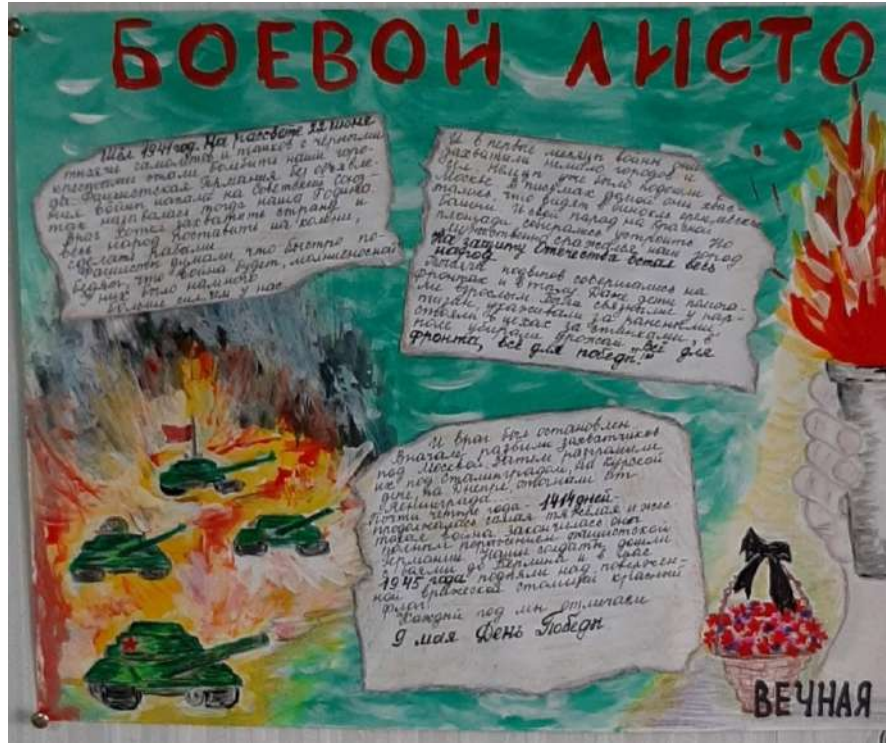 БОЕВОЙ ЛИСТО
Шёл 1941 год. На рассвете 22 июня
тысячи самолётов и танков с чёрными
крестами стали бомбить наши горо-
да. Фашистская Германия без объявле-
ния войны напала на Советский Союз-
так называлась тогда наша Родина.
Враг хотел захватить страну и
весь народ поставить на колени,
сделать рабами.
Фашисты думали, что быстро по-
бедят, что война будет молниеносной
У них было намного
больше сил, чем у нас
И в первые месяцы войны они
захватили немало городов и
сёл. Немцы уже были
Москве. В письмах домой они хвас-
тались, что видят в бинокль кремлёвские
башни. И свой парад на Красной
площади собирались устроить. Но
мужественно сражался наш город
На защиту Отечества встал весь
народ
Тысячи подвигов совершались на
фронтах и в тылу. Даже дети помога-
ли взрослым связными у пар-
тизан, ухаживали за ранеными
стояли в цехах за станками, в
поле убирали урожай. "Всё для
фронта, всё для победы!"
И враг был остановлен.
Вначале разбили захватчиков
под Москвой. Затем разгромили
их под Сталинградом, на Курской
дуге, на Днепре, отогнали от
Ленинграда.
Почти четыре года - 1414 дней-
продолжалась самая тяжёлая и жес
токая война. Закончилась она
полным поражением фашистской
Германии. Наши солдаты дошли
с боями до Берлина и в мае
1945 года подняли над повержен-
ной вражеской столицей красный
флаг!
Каждый год мы отмечаем
9 мая День Победы
ВЕЧНАЯ